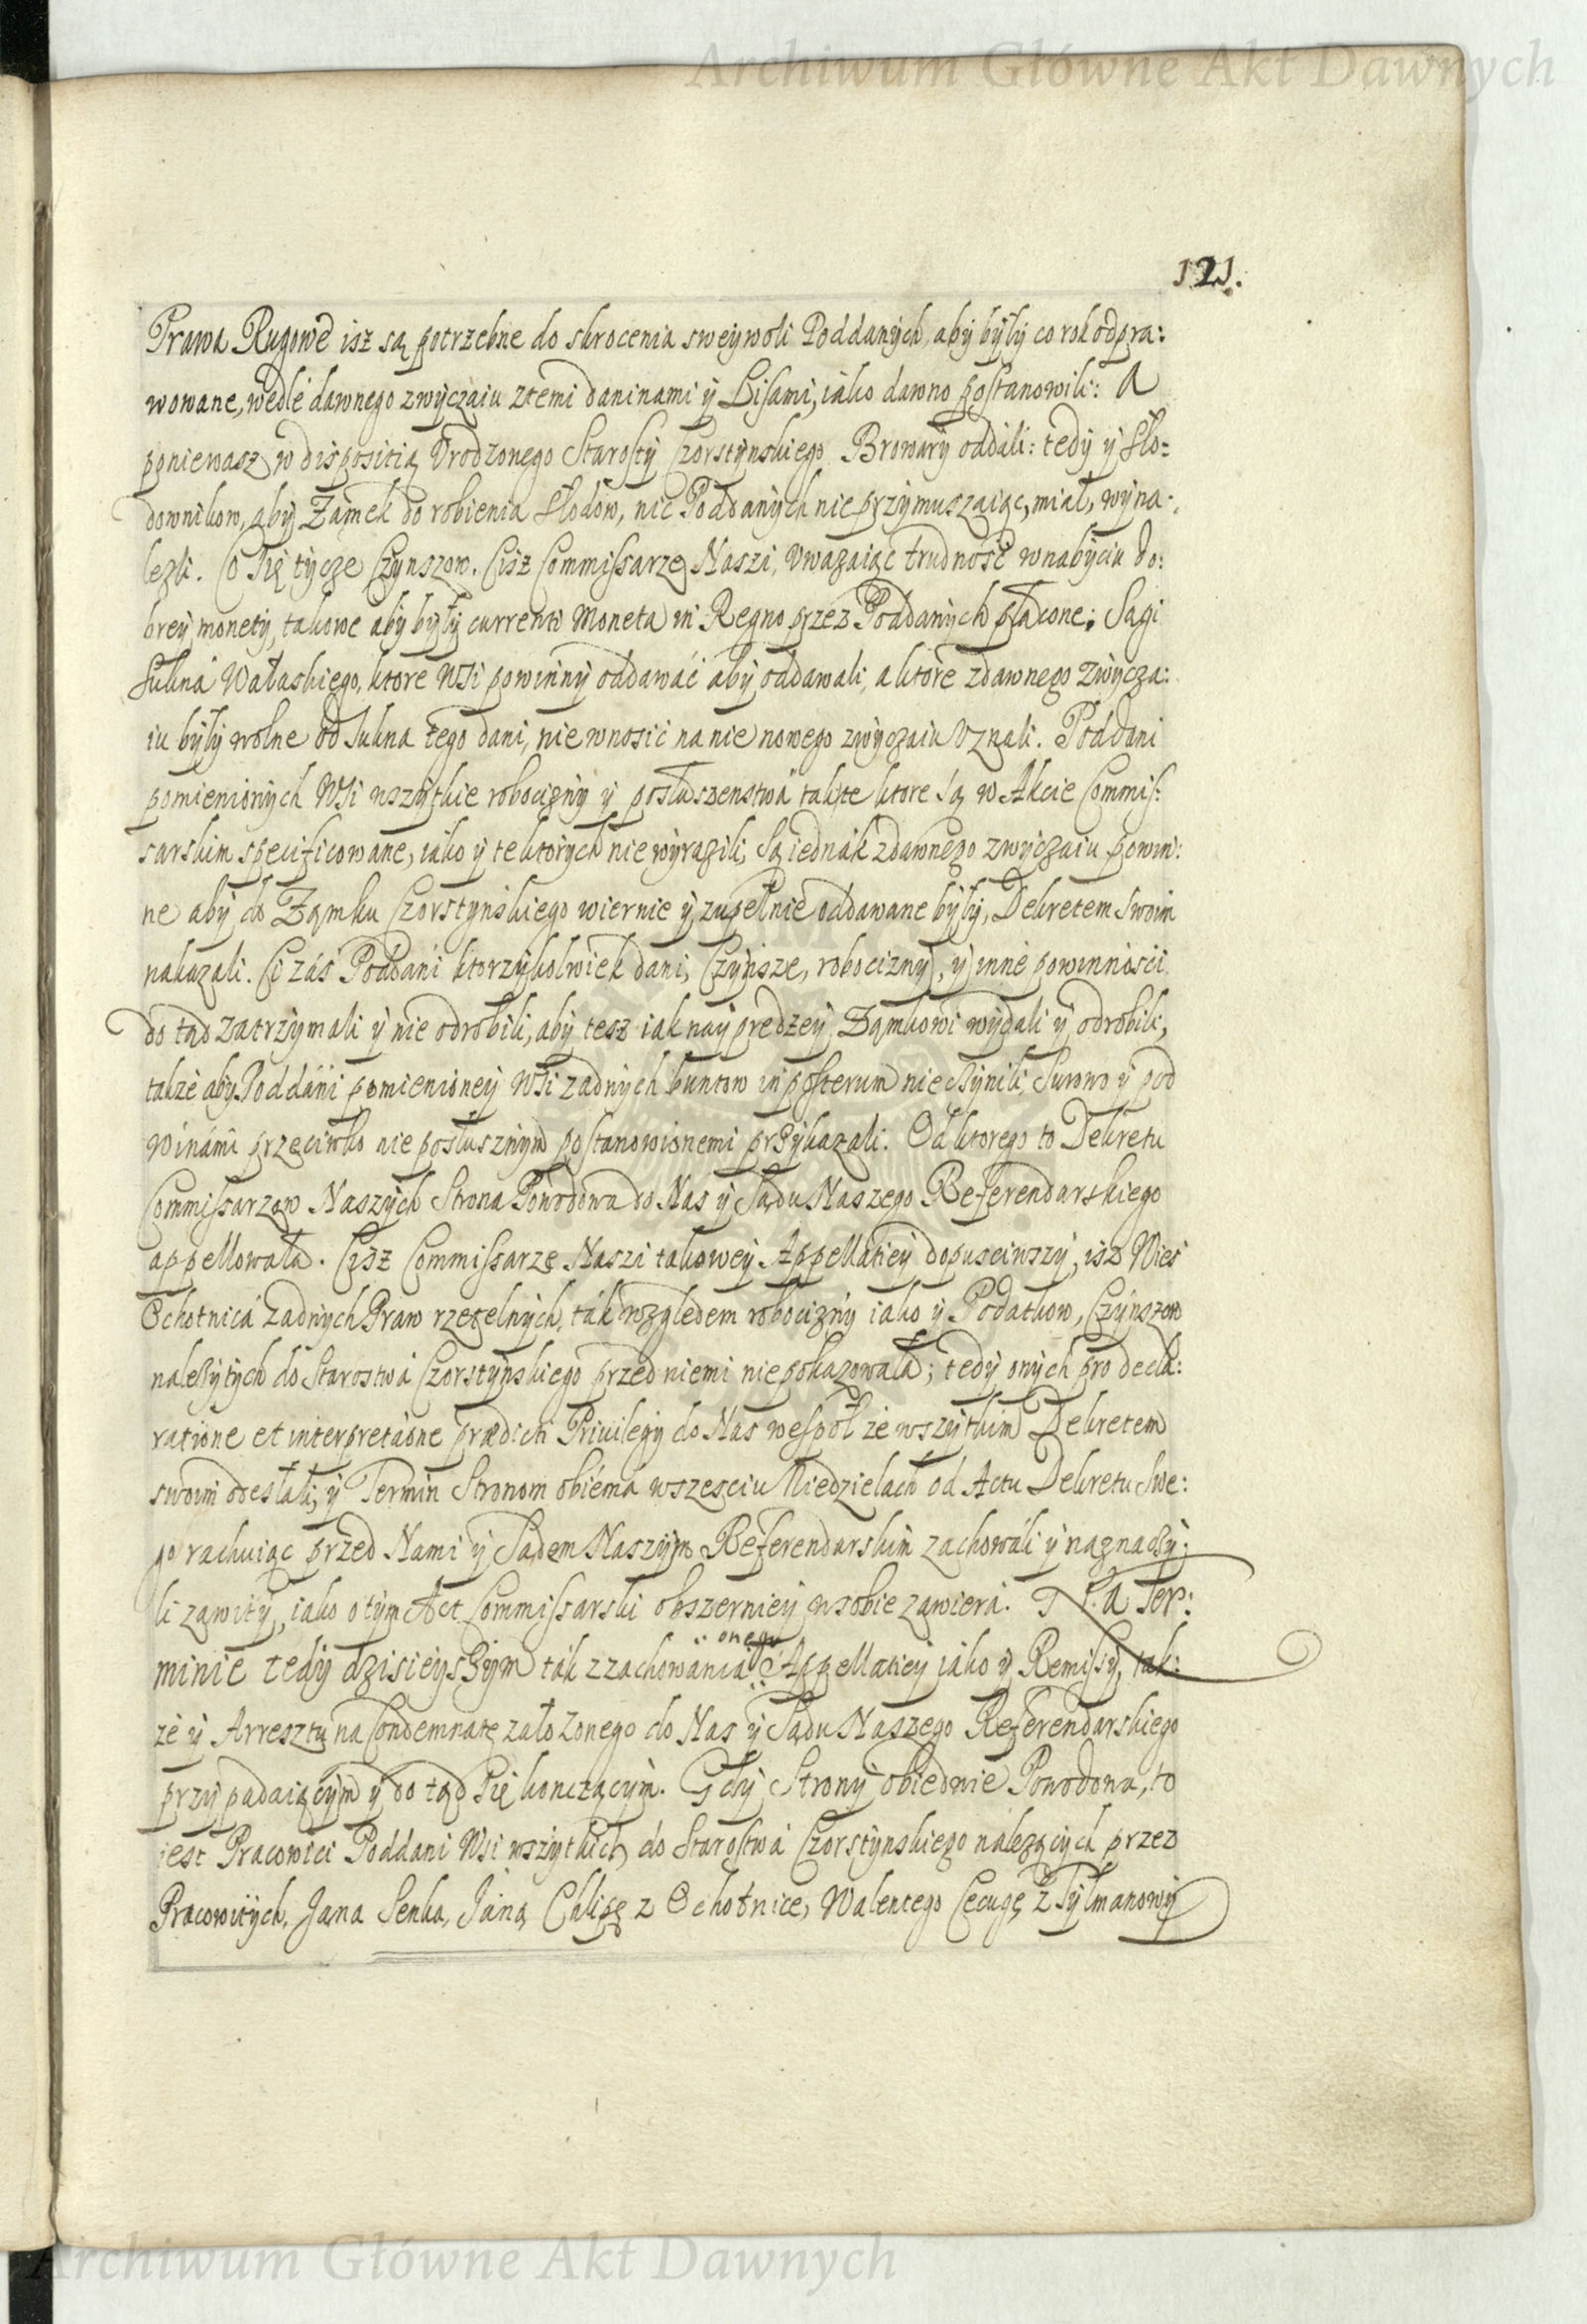 Archiwum Główne Akt Dawnych
121.
Prawa Rugowe isz są potrzebne do skrocenia sweywoli Poddanych, aby były co rok odpra:
wowane, wedle dawnego zwyczaiu ztemi daninami y Lisami, iako dawno postanowili: A
poniewasz w dispositią Vrodzonego Starosty Czorstynskiego Browary oddali: tedy y Sło=
downikow, aby Zamek do robienia Słodow, nic Poddanych nie przymuszaiąc, miał, wyna:
lezli. Co się tycze Czynszow. Cisz Commissarze Naszi, vwazaiąc trudność w nabyciu do:
brey monety, takowe aby były currenti Moneta in Regno przez Poddanych płacone; Sagi
Sukna Wałaskiego, ktore Wsi powinny oddawać aby oddawali, a ktore zdawnego zwycza:
iu były wolne od sukna tego dani, nie wnosić na nie nowego zwyczaiu vznali. Poddani
pomienionych Wsi wszytkie robocizny y posłuszenstwa takte ktore są w Akcie Commis:
sarskim specificowane, iako y te ktorych nie wyrazili, są iednak zdawnego zwyczaiu powin:
ne aby do Zamku Czorstynskiego wiernie y zupełnie oddawane były, Dekretem swoim
nakazali. Ci zás Poddani ktorzykolwiek dani, Czynsze, robocizny, y inne powinności
do tąd zatrzymali y nie odrobili, aby tesz iak nayprędzey Zamkowi wydali y odrobili,
takze aby Poddani pomienioney Wsi zadnych buntow in posterum nie czynili, surowo y pod
winámi przeciwko nie posłusznym postanowionemi przykazali. Od ktorego to Dekretu
Commissarzow Naszych Strona Powodowa do Nas y Sądu Naszego Referendarskiego
appellowała. Cisz Commissarze Naszi takowey Appellatiey dopusciwszy, isz Wies
Ochotnica Zadnych Praw rzetelnych, ták względem robocizny iako y Podatkow, Czynszow
nalezytych do Starostwa Czorstynskiego przed niemi nie pokazowała; tedy onych pro decla:
ratione et interpretatione prædicti Priuilegij do Nas wespoł ze wszytkim Dekretem
swoim odesłali, y Termin Stronom obiema w szesciu Niedzielach od Actu Dekretu Swe:
go rachuiąc przed Nami y Sądem Naszym Referendarskim zachowali y naznaczy:
li zawity, iako o tym Act Commissarski obszerniey w sobie zawiera. Na Ter:
onego
minie tedy dzisieyszym ták z zachowánia Appellatiey iako y Remissy, tak:
ze y Arresztu na Condemnatę założonego do Nas y Sądu Naszego Referendarskiego
przypadaiącym y do tąd się konczącym. Gdy Strony obiedwie Powodowa, to
iest Pracowici Poddani Wsi wszytkich do Starostwá Czorstynskiego nálezących przez
Pracowitych, Jana Senka, Jána Chlipę z Ochotnice, Walentego Cecugę z Tylmanowy
Archiwum Główne Akt Dawnych